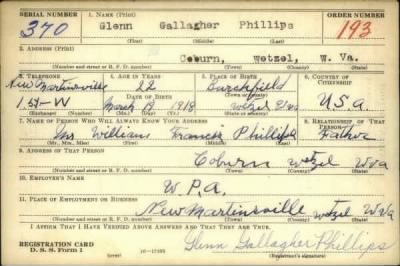 SERIAL NUMBER 1. NAME (Print) ORDER NUMBER
370 Glenn Gallagher Phillips 193
(First) (Middle) (Last)
2. ADDRESS (Print)
Coburn, Wetzel, W. Va.
(Number and street or R. F. D. number) (Town) (County) (State)
3. TELEPHONE 4. AGE IN YEARS 5. PLACE OF BIRTH 6. COUNTRY OF CITIZENSHIP
New Martinsville 22 Burchfield
DATE OF BIRTH (Town or county)
1.5F-W March 19 1918 Wetzel U.S.A.
(Exchange) (Number) (Mo.) (Day) (Yr.) (State or country)
7. NAME OF PERSON WHO WILL ALWAYS KNOW YOUR ADDRESS 8. RELATIONSHIP OF THAT PERSON
William Francis Phillips Father
(Mr., Mrs., Miss) (First) (Middle) (Last)
9. ADDRESS OF THAT PERSON
Coburn Wetzel W Va
(Number and street or R. F. D. number) (Town) (County) (State)
10. EMPLOYER'S NAME
W.P.A.
11. PLACE OF EMPLOYMENT OR BUSINESS
New Martinsville Wetzel W Va
(Number and street or R. F. D. number) (Town) (County) (State)
I AFFIRM THAT I HAVE VERIFIED ABOVE ANSWERS AND THAT THEY ARE TRUE.
REGISTRATION CARD
D. S. S. Form 1 Glenn Gallagher Phillips
(Registrant's signature)